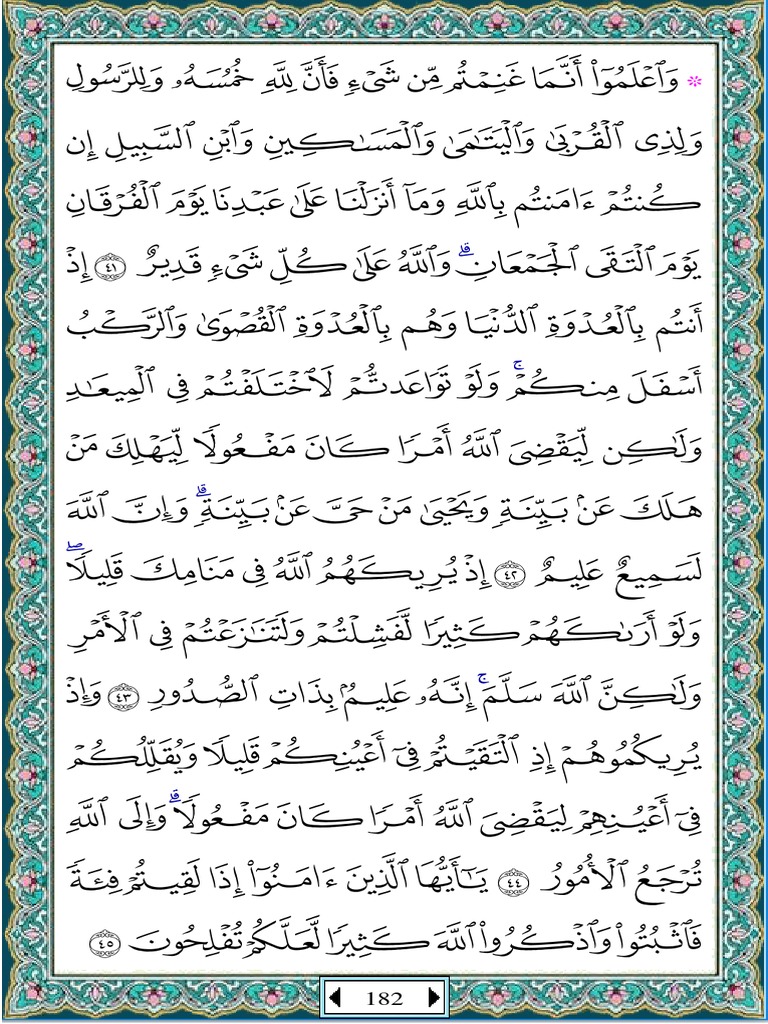 ۞ وَٱعۡلَمُوٓاْ أَنَّمَا غَنِمۡتُم مِّن شَيۡءٖ فَأَنَّ لِلَّهِ خُمُسَهُۥ وَلِلرَّسُولِ
وَلِذِي ٱلۡقُرۡبَىٰ وَٱلۡيَتَٰمَىٰ وَٱلۡمَسَٰكِينِ وَٱبۡنِ ٱلسَّبِيلِ إِن
كُنتُمۡ ءَامَنتُم بِٱللَّهِ وَمَآ أَنزَلۡنَا عَلَىٰ عَبۡدِنَا يَوۡمَ ٱلۡفُرۡقَانِ
يَوۡمَ ٱلۡتَقَى ٱلۡجَمۡعَانِۗ وَٱللَّهُ عَلَىٰ كُلِّ شَيۡءٖ قَدِيرٌ ٤١ إِذۡ
أَنتُم بِٱلۡعُدۡوَةِ ٱلدُّنۡيَا وَهُم بِٱلۡعُدۡوَةِ ٱلۡقُصۡوَىٰ وَٱلرَّكۡبُ
أَسۡفَلَ مِنكُمۡۚ وَلَوۡ تَوَاعَدتُّمۡ لَٱخۡتَلَفۡتُمۡ فِي ٱلۡمِيعَٰدِ
وَلَٰكِن لِّيَقۡضِيَ ٱللَّهُ أَمۡرٗا كَانَ مَفۡعُولٗا لِّيَهۡلِكَ مَنۡ
هَلَكَ عَنۢ بَيِّنَةٖ وَيَحۡيَىٰ مَنۡ حَيَّ عَنۢ بَيِّنَةٖۗ وَإِنَّ ٱللَّهَ
لَسَمِيعٌ عَلِيمٌ ٤٢ إِذۡ يُرِيكَهُمُ ٱللَّهُ فِي مَنَامِكَ قَلِيلٗاۖ
وَلَوۡ أَرَىٰكَهُمۡ كَثِيرٗا لَّفَشِلۡتُمۡ وَلَتَنَٰزَعۡتُمۡ فِي ٱلۡأَمۡرِ
وَلَٰكِنَّ ٱللَّهَ سَلَّمَۚ إِنَّهُۥ عَلِيمُۢ بِذَاتِ ٱلصُّدُورِ ٤٣ وَإِذۡ
يُرِيكُمُوهُمۡ إِذِ ٱلۡتَقَيۡتُمۡ فِيٓ أَعۡيُنِكُمۡ قَلِيلٗا وَيُقَلِّلُكُمۡ
فِيٓ أَعۡيُنِهِمۡ لِيَقۡضِيَ ٱللَّهُ أَمۡرٗا كَانَ مَفۡعُولٗاۗ وَإِلَى ٱللَّهِ
تُرۡجَعُ ٱلۡأُمُورُ ٤٤ يَٰٓأَيُّهَا ٱلَّذِينَ ءَامَنُوٓاْ إِذَا لَقِيتُمۡ فِئَةٗ
فَٱثۡبُتُواْ وَٱذۡكُرُواْ ٱللَّهَ كَثِيرٗا لَّعَلَّكُمۡ تُفۡلِحُونَ ٤٥
182